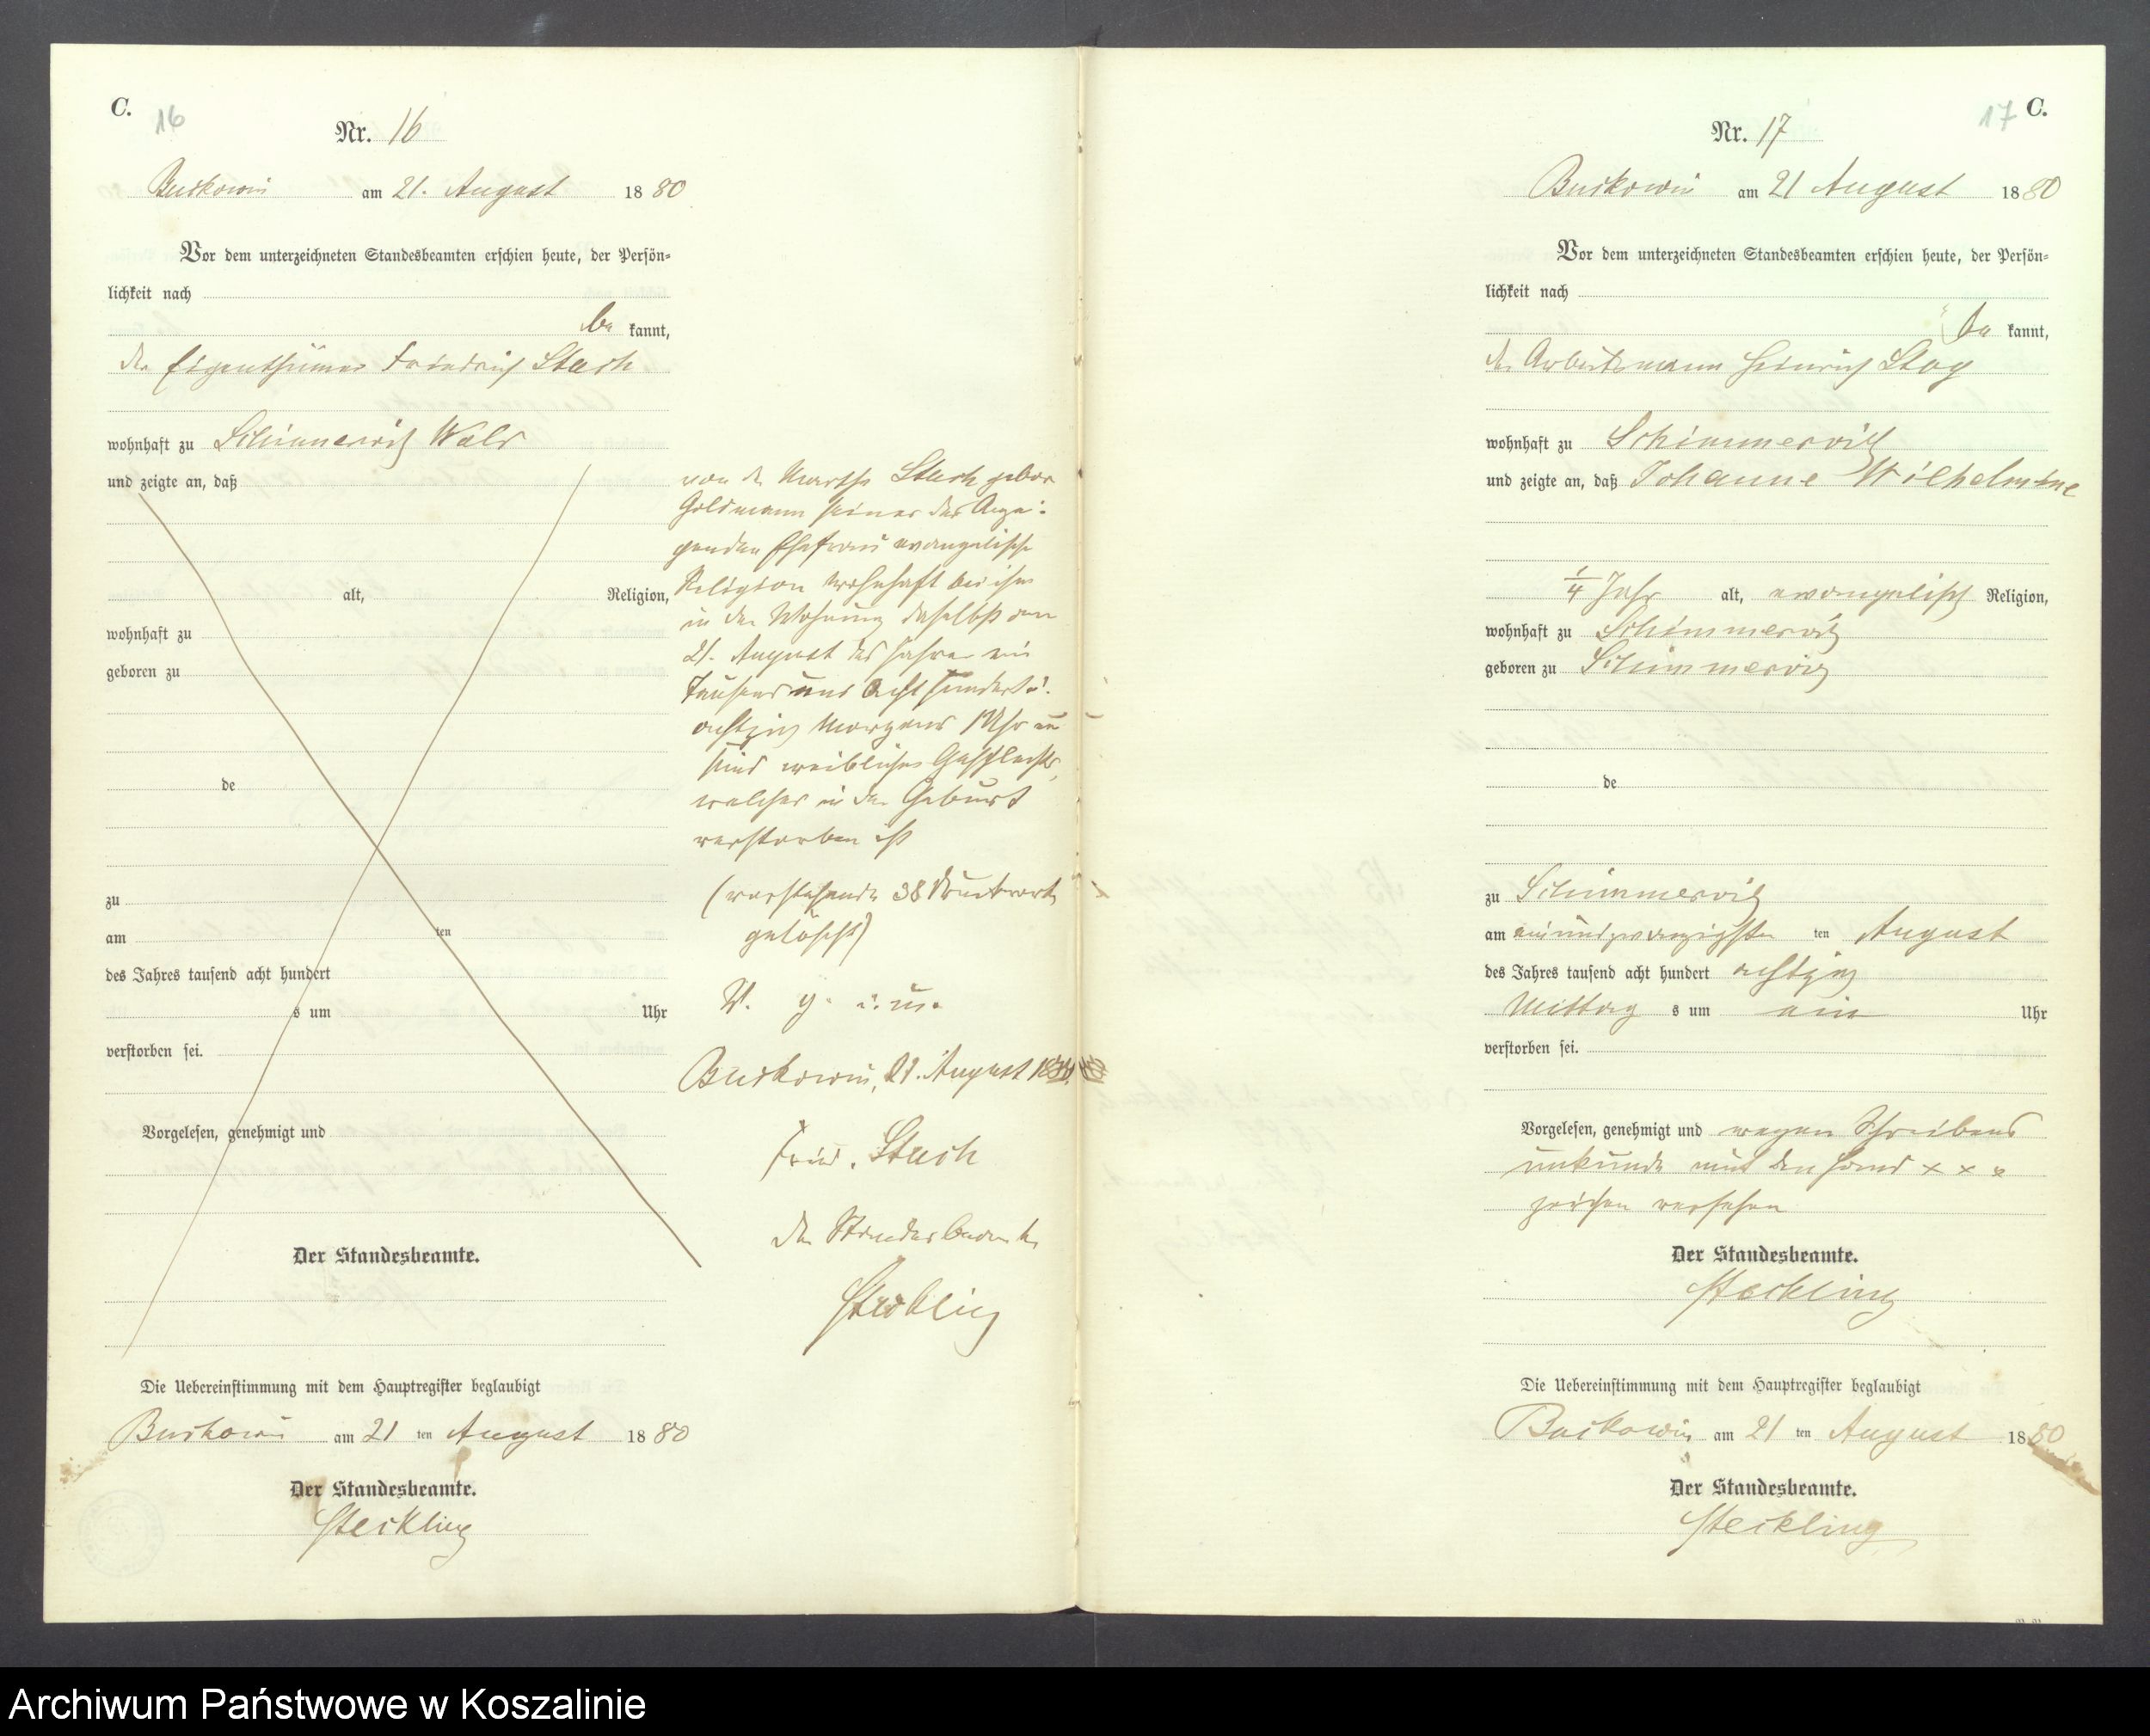 C.
16
Nr. 16
Buckowin am 21. August 1880
Vor dem unterzeichneten Standesbeamten erschien heute, der Persön-
lichkeit nach
be kannt,
der Eigenthümer Friedrich Stach
wohnhaft zu Schimmerwitz Wald
und zeigte an, daß
alt, Religion,
wohnhaft zu
geboren zu
de
zu
am ten
des Jahres tausend acht hundert
s um Uhr
verstorben sei.
Vorgelesen, genehmigt und
Der Standesbeamte.
Die Uebereinstimmung mit dem Hauptregister beglaubigt
Buckowin am 21 ten August 1880
Der Standesbeamte.
Steckling
von der Stach gebor
Goldmann seiner des Anzei-
genden Ehefrau evangelische
Religion wohnhaft bei ihm
in der Wohnung daselbst am
21. August des Jahres ein
Tausend und acht hundert u.
achtzig Morgens 1 Uhr ein
Kind weiblichen Geschlechts,
welches in der Geburt
verstorben ist
(vorstehende 38 Druckworte
gelöscht)
V. g. u. u.
Buckowin, 21. August
Fried. Stach
der Standesbeamte
Steckling
17 C.
Nr. 17
Buckowin am 21 August 1880
Vor dem unterzeichneten Standesbeamten erschien heute, der Persön-
lichkeit nach
be kannt,
der Arbeitsmann Heinrich
wohnhaft zu Schimmerwitz
und zeigte an, daß Johanne Wilhelmine
1/4 Jahr alt, evangelisch Religion,
wohnhaft zu Schimmerwitz
geboren zu Schimmerwitz
de
zu Schimmerwitz
am einundzwanzigsten ten August
des Jahres tausend acht hundert achtzig
Mittag s um ein Uhr
verstorben sei.
Vorgelesen, genehmigt und wegen Schreibens
unkunde mit den Hand x x x
zeichen versehen
Der Standesbeamte.
Steckling
Die Uebereinstimmung mit dem Hauptregister beglaubigt
Buckowin am 21 ten August 1880
Der Standesbeamte.
Steckling
Archiwum Państwowe w Koszalinie